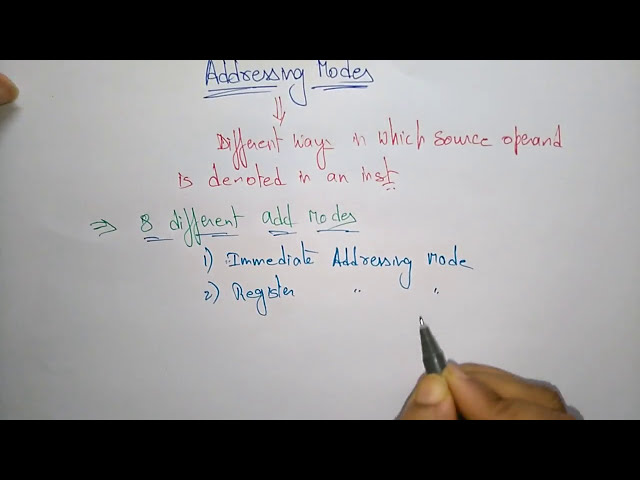 Addressing Modes
Different ways in which source operand
is denoted in an inst
⇒ 8 different add Modes
1) Immediate Addressing Mode
2) Register " "